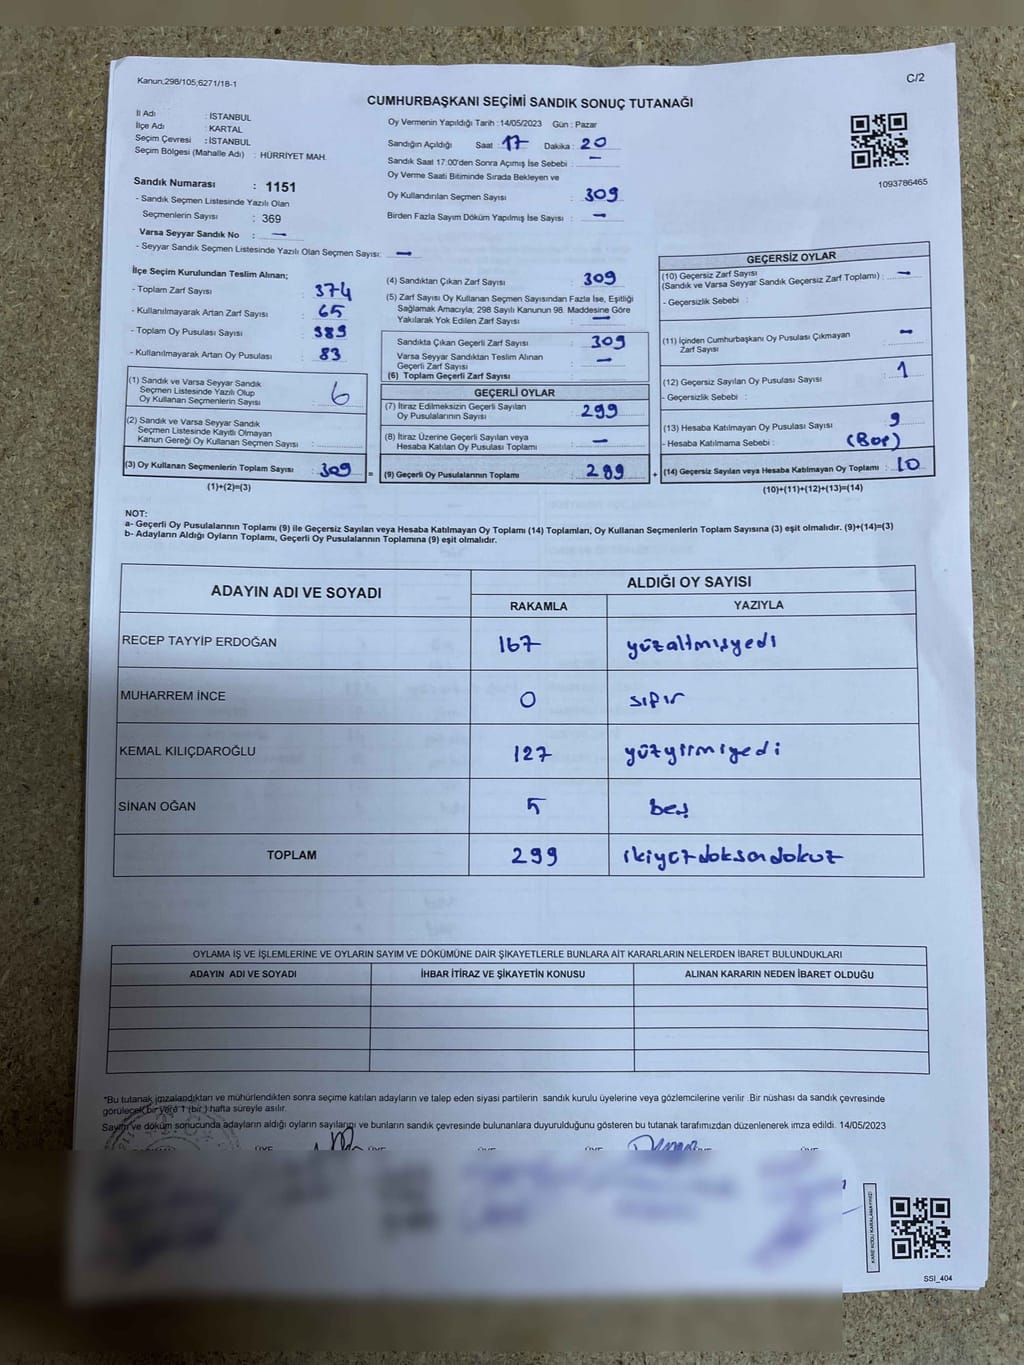 Kanun,298/105;6271/18-1
C/2
CUMHURBAŞKANI SEÇİMİ SANDIK SONUÇ TUTANAĞI
İl Adı : İSTANBUL
İlçe Adı : KARTAL
Seçim Çevresi : İSTANBUL
Seçim Bölgesi (Mahalle Adı) : HÜRRİYET MAH.
Oy Vermenin Yapıldığı Tarih :14/05/2023 Gün : Pazar
Sandığın Açıldığı Saat 17 Dakika : 20
Sandık Saat 17:00'den Sonra Açımış İse Sebebi : —
Oy Verme Saati Bitiminde Sırada Bekleyen ve
Oy Kullandırılan Seçmen Sayısı : 309
Birden Fazla Sayım Döküm Yapılmış İse Sayısı : —
1093786465
Sandık Numarası : 1151
- Sandık Seçmen Listesinde Yazılı Olan
Seçmenlerin Sayısı : 369
Varsa Seyyar Sandık No : —
- Seyyar Sandık Seçmen Listesinde Yazılı Olan Seçmen Sayısı: —
İlçe Seçim Kurulundan Teslim Alınan;
- Toplam Zarf Sayısı : 374
- Kullanılmayarak Artan Zarf Sayısı : 65
- Toplam Oy Pusulası Sayısı : 389
- Kullanılmayarak Artan Oy Pusulası : 83
(1) Sandık ve Varsa Seyyar Sandık
Seçmen Listesinde Yazılı Olup
Oy Kullanan Seçmenlerin Sayısı : 6
(2) Sandık ve Varsa Seyyar Sandık
Seçmen Listesinde Kayıtlı Olmayan
Kanun Gereği Oy Kullanan Seçmen Sayısı :
(3) Oy Kullanan Seçmenlerin Toplam Sayısı : 309 =
(1)+(2)=(3)
(4) Sandıktan Çıkan Zarf Sayısı : 309
(5) Zarf Sayısı Oy Kullanan Seçmen Sayısından Fazla İse, Eşitliği
Sağlamak Amacıyla; 298 Sayılı Kanunun 98. Maddesine Göre
Yakılarak Yok Edilen Zarf Sayısı : —
Sandıkta Çıkan Geçerli Zarf Sayısı : 309
Varsa Seyyar Sandıktan Teslim Alınan
Geçerli Zarf Sayısı : —
(6) Toplam Geçerli Zarf Sayısı :
GEÇERLİ OYLAR
(7) İtiraz Edilmeksizin Geçerli Sayılan
Oy Pusulalarının Sayısı : 299
(8) İtiraz Üzerine Geçerli Sayılan veya
Hesaba Katılan Oy Pusulası Toplamı : —
(9) Geçerli Oy Pusulalarının Toplamı : 299 +
GEÇERSİZ OYLAR
(10) Geçersiz Zarf Sayısı
(Sandık ve Varsa Seyyar Sandık Geçersiz Zarf Toplamı) : —
- Geçersizlik Sebebi :
(11) İçinden Cumhurbaşkanı Oy Pusulası Çıkmayan
Zarf Sayısı : —
(12) Geçersiz Sayılan Oy Pusulası Sayısı : 1
- Geçersizlik Sebebi :
(13) Hesaba Katılmayan Oy Pusulası Sayısı : 9
- Hesaba Katılmama Sebebi : (Boş)
(14) Geçersiz Sayılan veya Hesaba Katılmayan Oy Toplamı : 10
(10)+(11)+(12)+(13)=(14)
NOT:
a- Geçerli Oy Pusulalarının Toplamı (9) ile Geçersiz Sayılan veya Hesaba Katılmayan Oy Toplamı (14) Toplamları, Oy Kullanan Seçmenlerin Toplam Sayısına (3) eşit olmalıdır. (9)+(14)=(3)
b- Adayların Aldığı Oyların Toplamı, Geçerli Oy Pusulalarının Toplamına (9) eşit olmalıdır.
ADAYIN ADI VE SOYADI ALDIĞI OY SAYISI
RAKAMLA YAZIYLA
RECEP TAYYİP ERDOĞAN 167 yüzaltmışyedi
MUHARREM İNCE 0 sıfır
KEMAL KILIÇDAROĞLU 127 yüzyirmiyedi
SİNAN OĞAN 5 beş
TOPLAM 299 ikiyüzdoksandokuz
OYLAMA İŞ VE İŞLEMLERİNE VE OYLARIN SAYIM VE DÖKÜMÜNE DAİR ŞİKAYETLERLE BUNLARA AİT KARARLARIN NELERDEN İBARET BULUNDUKLARI
ADAYIN ADI VE SOYADI İHBAR İTİRAZ VE ŞİKAYETİN KONUSU ALINAN KARARIN NEDEN İBARET OLDUĞU
*Bu tutanak imzalandıktan ve mühürlendikten sonra seçime katılan adayların ve talep eden siyasi partilerin sandık kurulu üyelerine veya gözlemcilerine verilir .Bir nüshası da sandık çevresinde
görülecek bir yere 1 (bir ) hafta süreyle asılır.
Sayım ve döküm sonucunda adayların aldığı oyların sayılarını ve bunların sandık çevresinde bulunanlara duyurulduğunu gösteren bu tutanak tarafımızdan düzenlenerek imza edildi. 14/05/2023
ÜYE ÜYE ÜYE ÜYE ÜYE ÜYE
KARE KODU KARALAMAYINIZ!
SSI_404